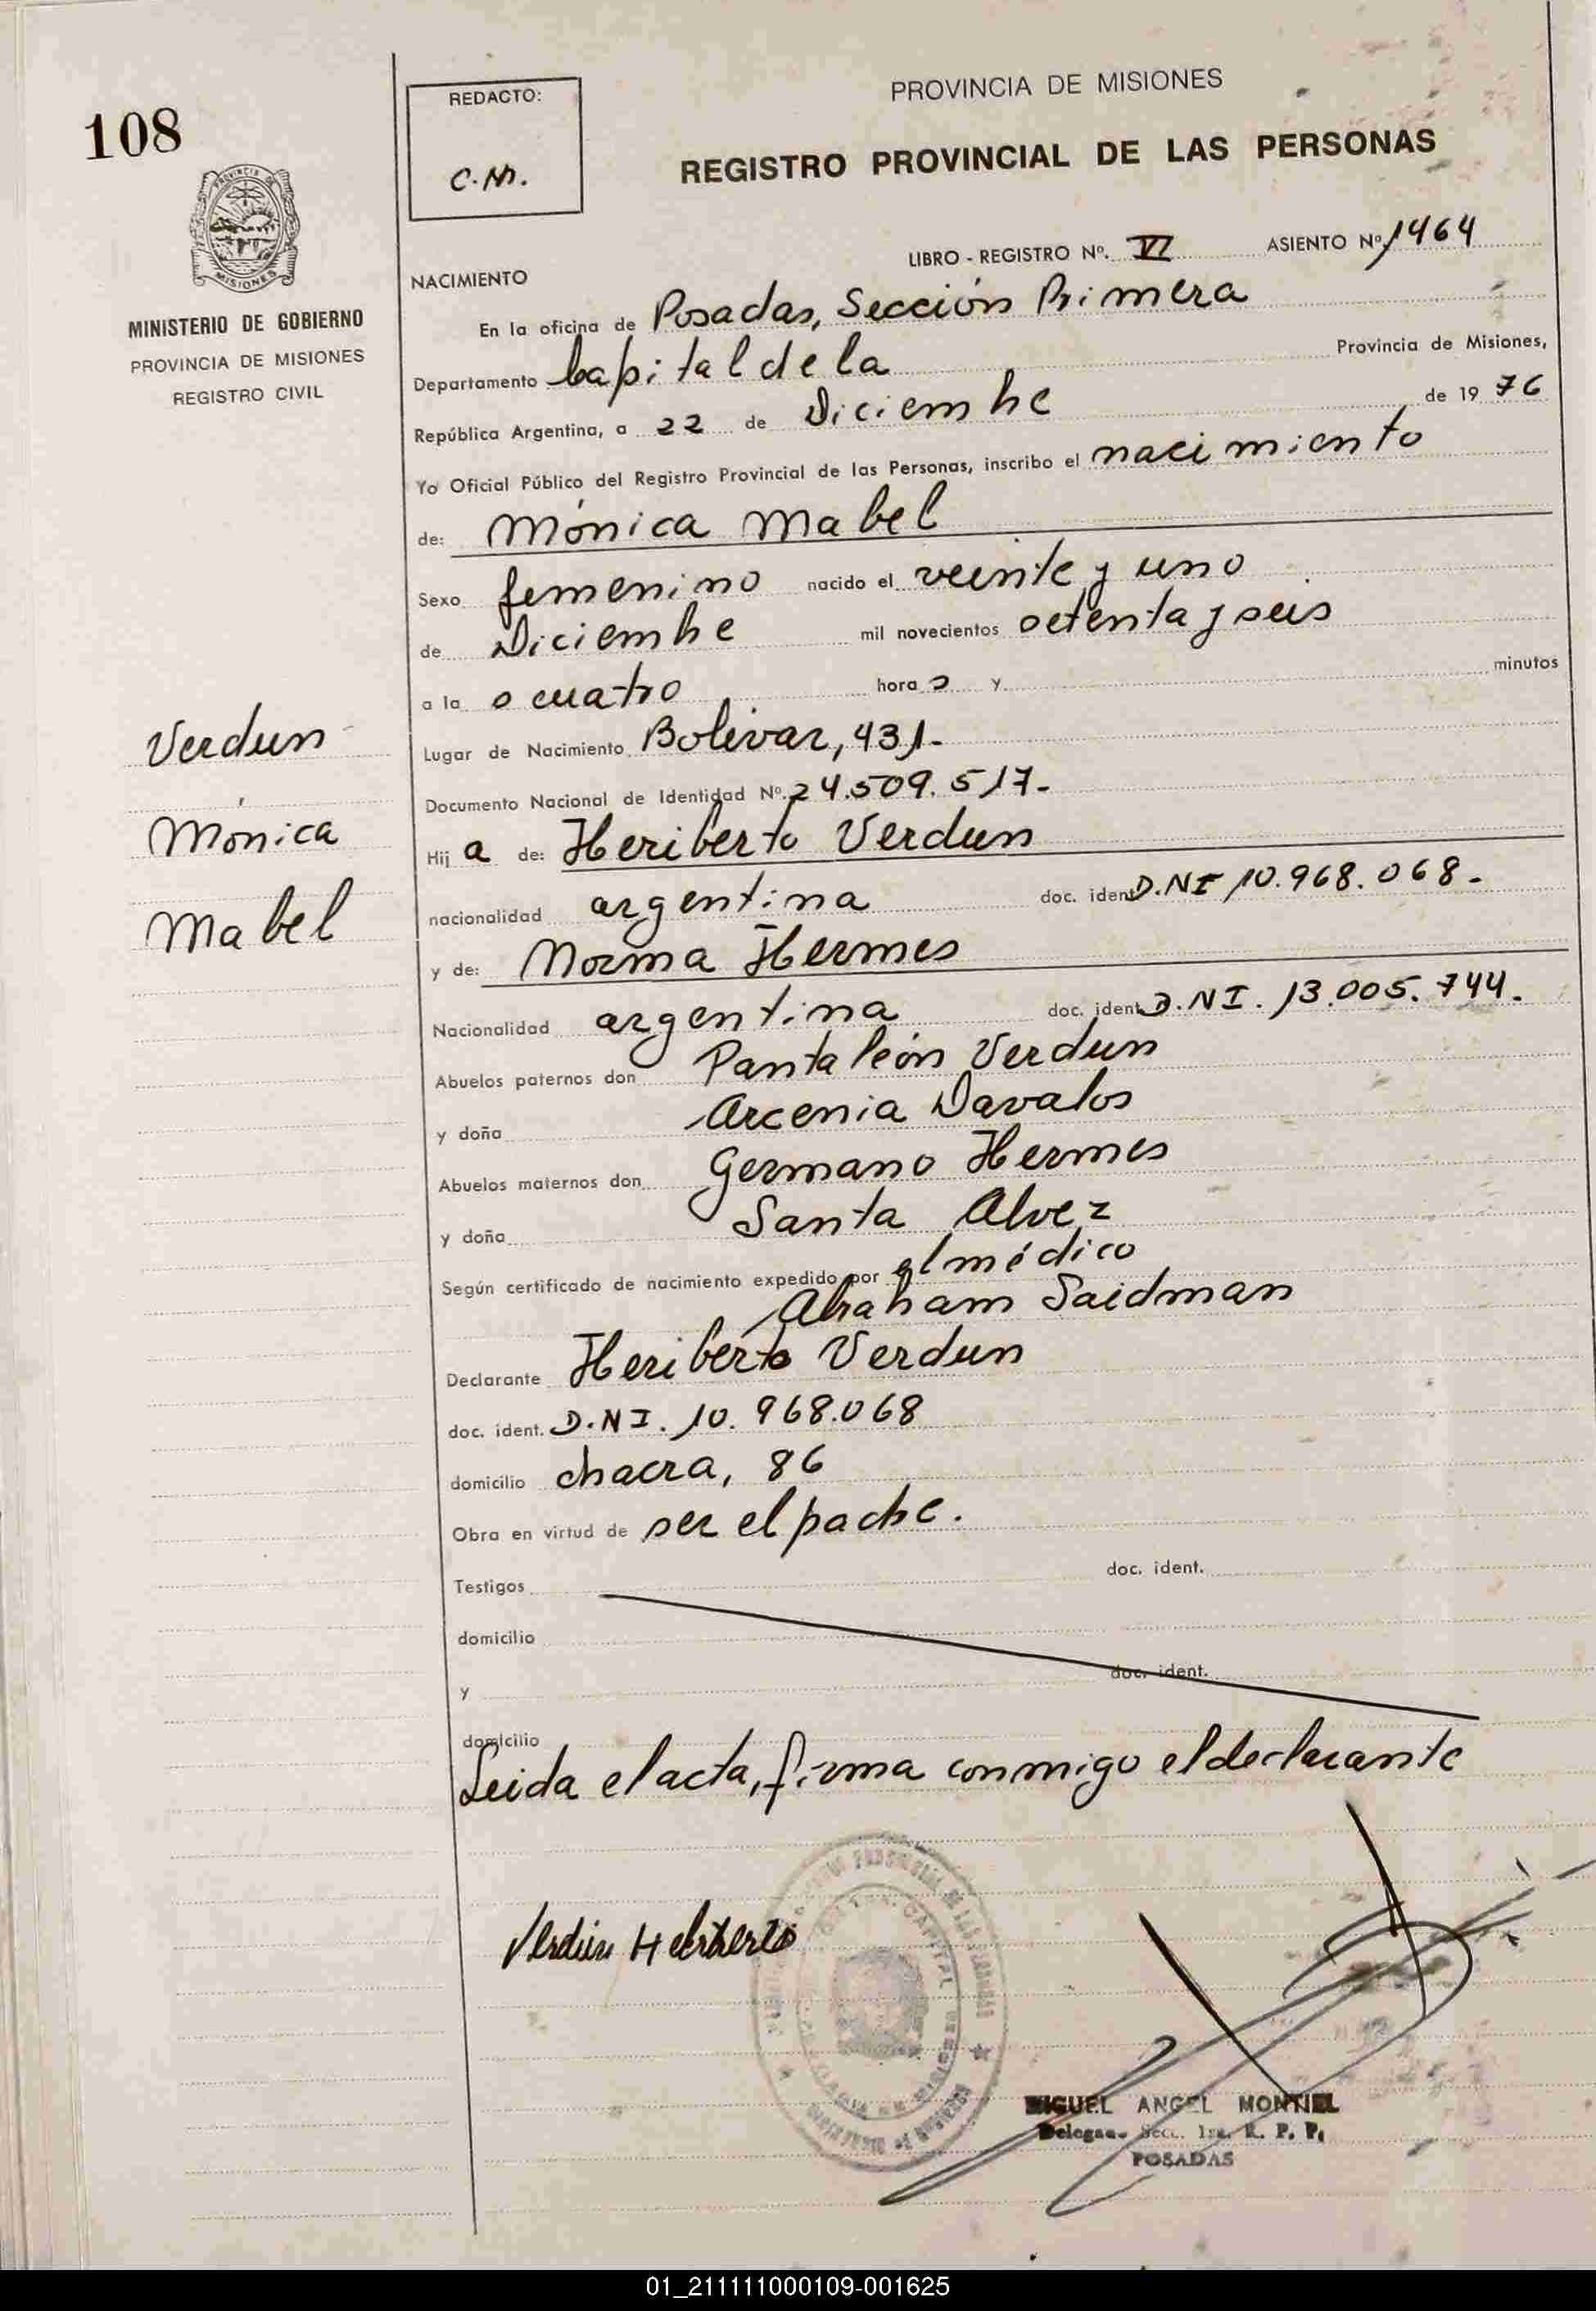 108
REDACTO:
C.M.
PROVINCIA DE MISIONES
REGISTRO PROVINCIAL DE LAS PERSONAS
PROVINCIA DE
MISIONES
MINISTERIO DE GOBIERNO
PROVINCIA DE MISIONES
REGISTRO CIVIL
LIBRO - REGISTRO Nº. VI ASIENTO Nº 1464
NACIMIENTO
En la oficina de Posadas, Sección Primera
Departamento Capital de la Provincia de Misiones,
República Argentina, a 22 de Diciembre de 19 76
Yo Oficial Público del Registro Provincial de las Personas, inscribo el nacimiento
de: Mónica Mabel
Sexo femenino nacido el veinte y uno
de Diciembre mil novecientos setenta y seis
a la s cuatro hora s y minutos
Lugar de Nacimiento Bolivar, 431.-
Documento Nacional de Identidad Nº. 24.509.517.-
Hij a de: Heriberto Verdun
nacionalidad argentina doc. ident D.NI 10.968.068.-
y de: Norma Hermes
Nacionalidad argentina doc. ident D.NI. 13.005.744.
Abuelos paternos don Pantaleón Verdun
y doña Arcenia Davalos
Abuelos maternos don Germano Hermes
y doña Santa Alvez
Según certificado de nacimiento expedido por el médico
Abraham Saidman
Declarante Heriberto Verdun
doc. ident. D.NI. 10.968.068
domicilio chacra, 86
Obra en virtud de ser el padre.
Testigos doc. ident.
domicilio
y doc. ident.
domicilio
Leida el acta, firma conmigo el declarante
Verdun
Mónica
Mabel
Verdún Heriberto
MIGUEL ANGEL MONTIEL
Delegado Secc. 1ra. R. P. P.
POSADAS
01_211111000109-001625